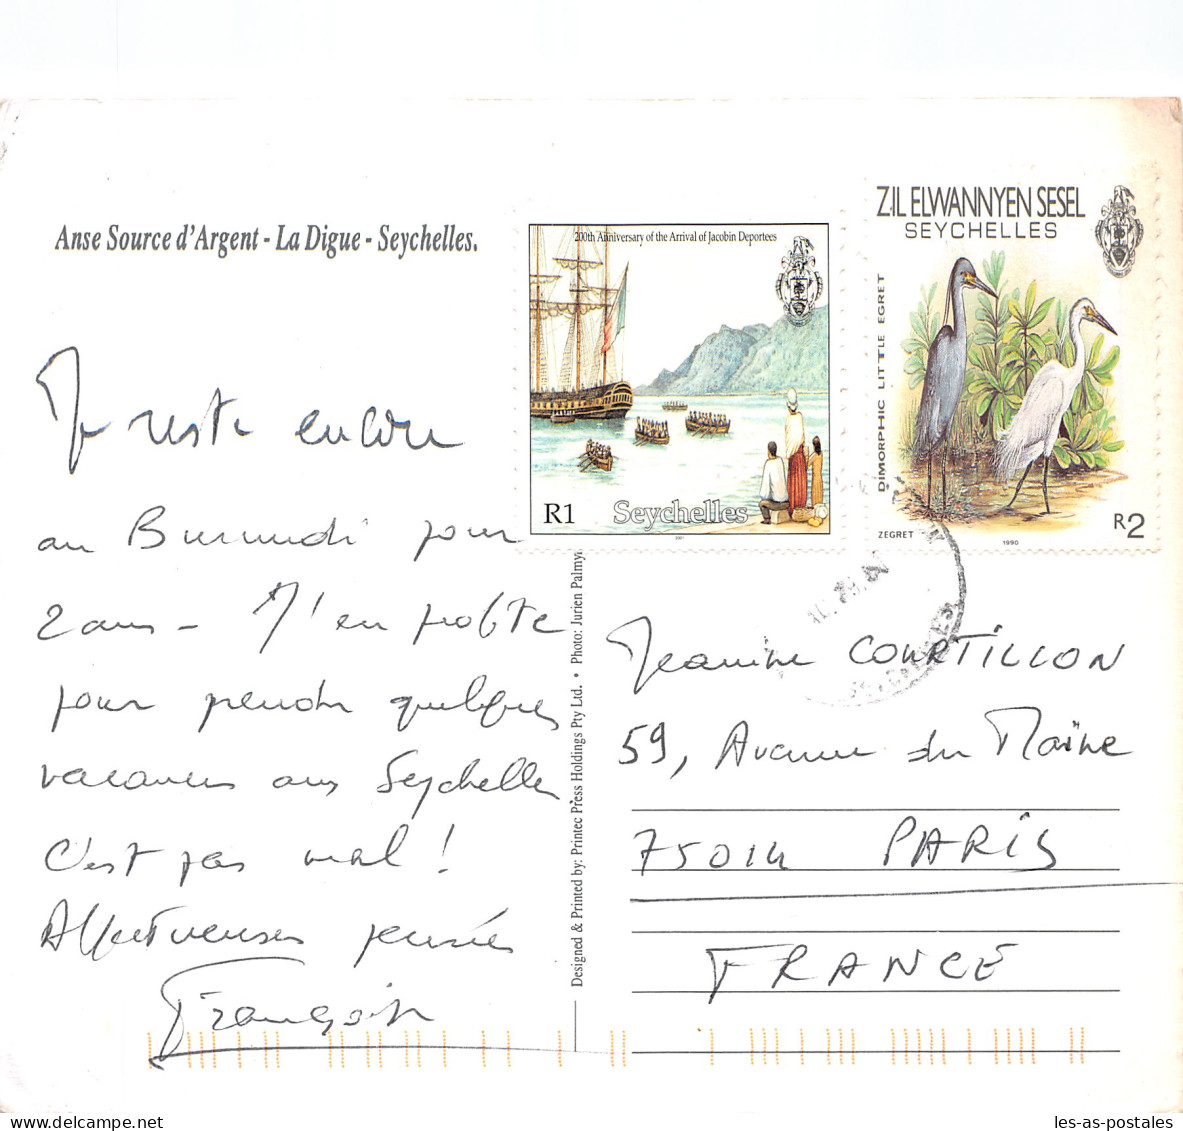 Anse Source d'Argent - La Digue - Seychelles.
200th Anniversary of the Arrival of Jacobin Deportees
R1 Seychelles
ZIL ELWANNYEN SESEL
SEYCHELLES
DIMORPHIC LITTLE EGRET
ZEGRET 1990 R2
Je reste encore
au Burundi pour
2 ans - J'en profite
pour prendre quelques
vacances aux Seychelles
C'est pas mal !
Affectueuses pensées
Designed & Printed by: Printec Press Holdings Pty Ltd. • Photo: Jurien Palmy
Jeanine COURTILLON
59, Avenue du Maine
75014 PARIS
FRANCE
les-as-postales